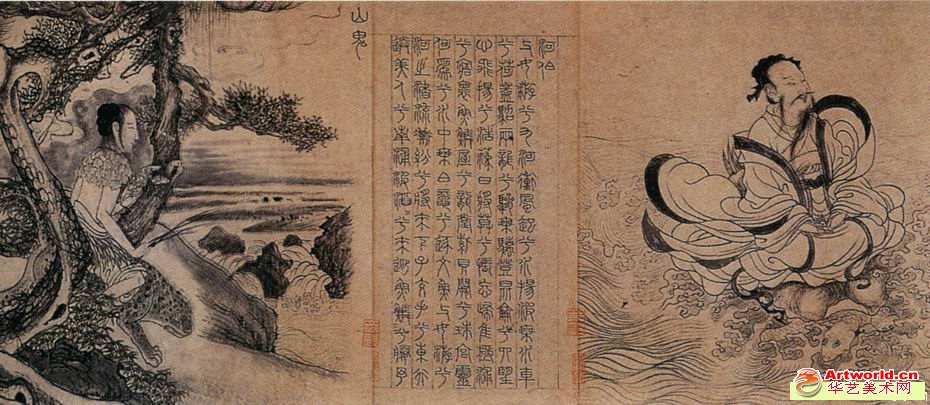 河伯
与女游兮九河衝風起兮水揚波乘水車
兮荷蓋駕兩龍兮驂螭登昆侖兮四望
心飛揚兮浩蕩日將莫兮悵忘歸惟極浦
兮寤懷魚鱗屋兮龍堂紫貝闕兮珠宮靈
何為兮水中乘白黿兮逐文魚與女游兮
河之渚流澌紛兮將來下子交手兮東行
送美人兮南浦波滔兮來迎魚鱗兮媵予
山鬼
Artworld.cn
华艺美术网